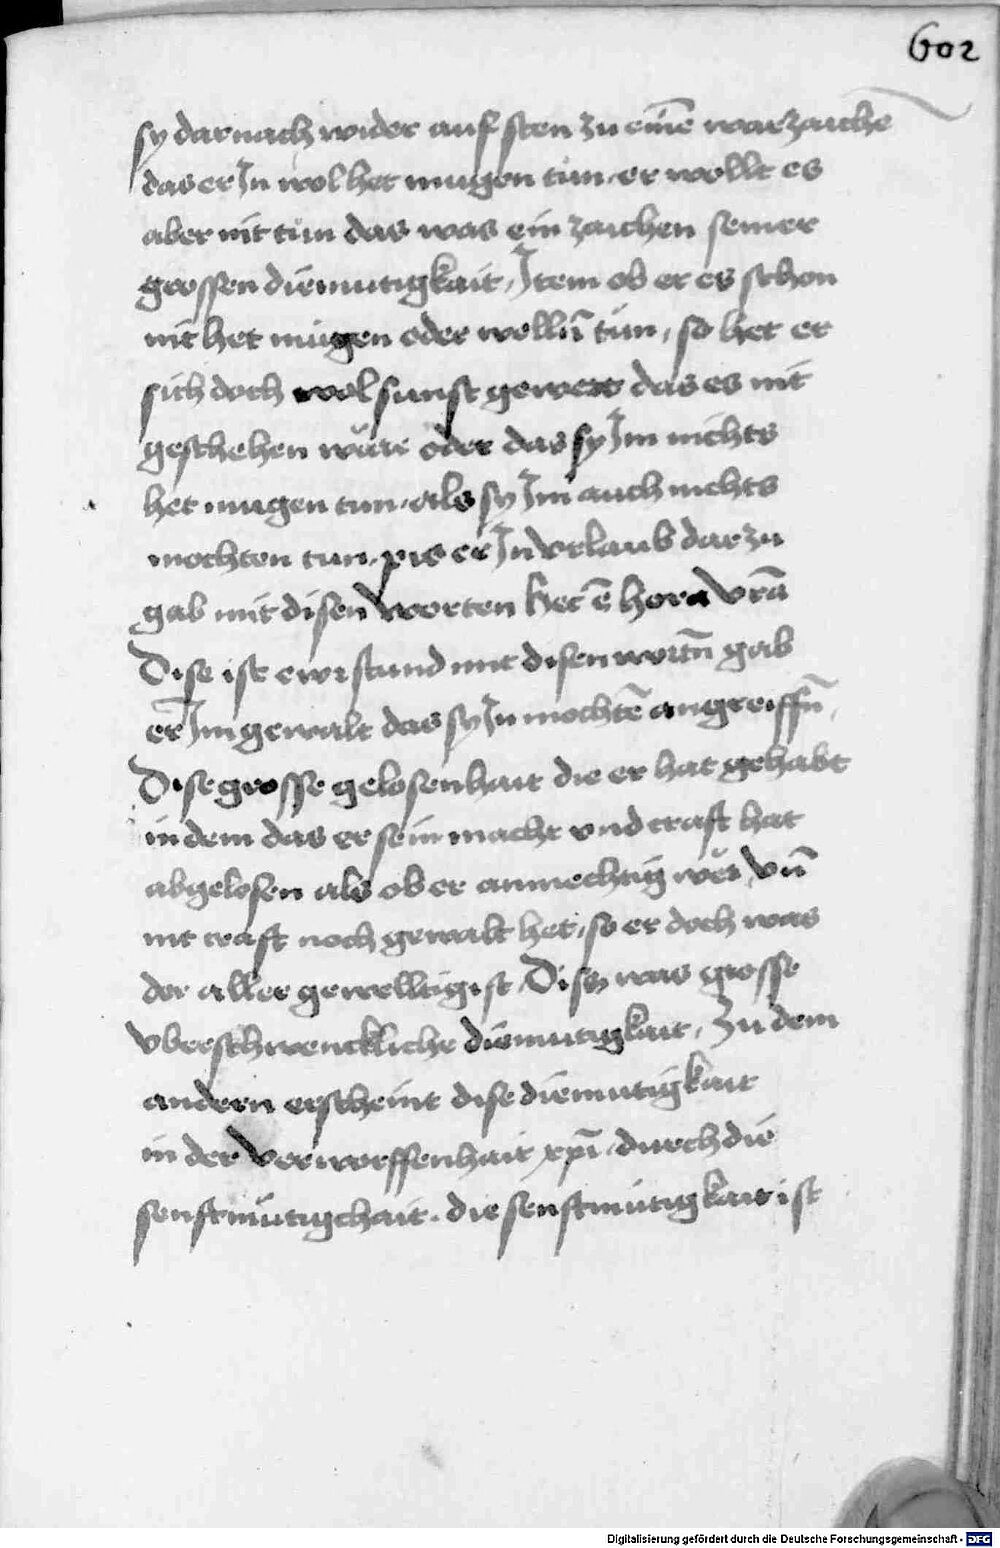 602
sy darnach wider auf sten zu eine͂ warzaiche
das er Jn wol het mugen tun er wellt es
aber nit tun das was ein zaichen seiner
grossen diemutigkait, Jtem ob er es schon
nit het mugen oder wellñ tün, so het er
sich doch wol sunst gewert das es nit
geschehen wäre oder das sy Jm nichts
het mugen tun, als sy Jm auch nichts
mochten tun, pis er Jn vrlaub dar zu
gab mit disen worten hec ē hora vr̄a
Dise ist ewr stund mit disen wortñ gab
er Jm gewalt das sy Jn mochtē angreiffñ,
Dise grosse gelosenhait die er hat gehabt
in dem das er sein macht vnd craft hat
abgelosen als ob er anmechtig wer, vn̄
nit craft noch gewalt het, so er doch was
der aller gewelltigist, Disz was grosse
vberschwenckliche diemutigkait, Zu dem
andern erscheint dise diemutigkait
in der verworffenhait xp̄i durch die
senftmütigchait. die senftmütigkait ist
Digitalisierung gefördert durch die Deutsche Forschungsgemeinschaft - DFG